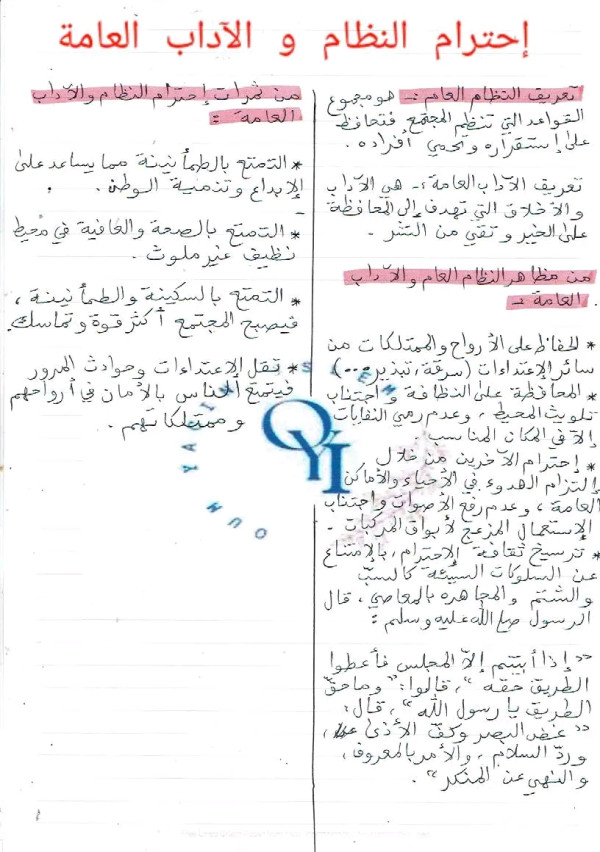 إحترام النظام و الآداب العامة
تعريف النظام العام :- هو مجموع
القواعد التي تنظم المجتمع فتحافظ
على إستقراره وتحمي أفراده .
تعريف الآداب العامة :- هي الآداب
والأخلاق التي تهدف إلى المحافظة
على الخير و تقي من الشر .
من مظاهر النظام العام والآداب
العامة :-
* الحفاظ على الأرواح والممتلكات من
سائر الإعتداءات (سرقة، تبذير...)
* المحافظة على النظافة و اجتناب
تلويث المحيط ، وعدم رمي النفايات
إلا في المكان المناسب .
* إحترام الآخرين من خلال
إلتزام الهدوء في الأحياء والأماكن
العامة ، وعدم رفع الأصوات واجتناب
الإستعمال المزعج لأبواق المركبات -
* ترسيخ ثقافة الإحترام، بالإمتناع
عن السلوكات السيئة كالسبّ
والشتم والمجاهره بالمعاصي ، قال
الرسول صلى الله عليه وسلم :
" إذا أبيتم إلاّ المجلس فأعطوا
الطريق حقه "، قالوا : " وما حقّ
الطريق يا رسول الله "، قال :
" غض البصر وكفّ الأذى ،
وردّ السلام ، والأمر بالمعروف ،
والنهي عن المنكر " .
من ثمرات إحترام النظام والآداب
العامة :
* التمتع بالطمأنينة مما يساعد على
الإبداع وتنمية الوطن .
* التمتع بالصحة والعافية في محيط
نظيف غير ملوث .
* التمتع بالسكينة والطمأنينة ،
فيصبح المجتمع أكثر قوة وتماسك .
* تقل الإعتداءات وحوادث المرور
فيتمتع الناس بالأمان في أرواحهم
وممتلكاتهم .
OYI